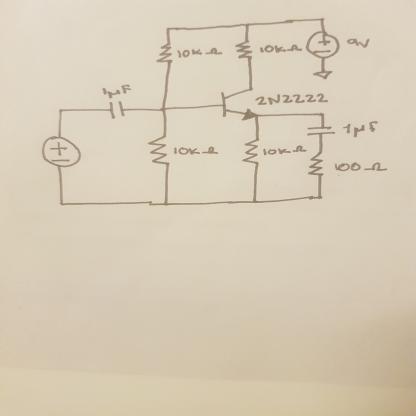 10KΩ
10KΩ
9V
1μF
2N2222
1μF
10KΩ
10KΩ
100Ω